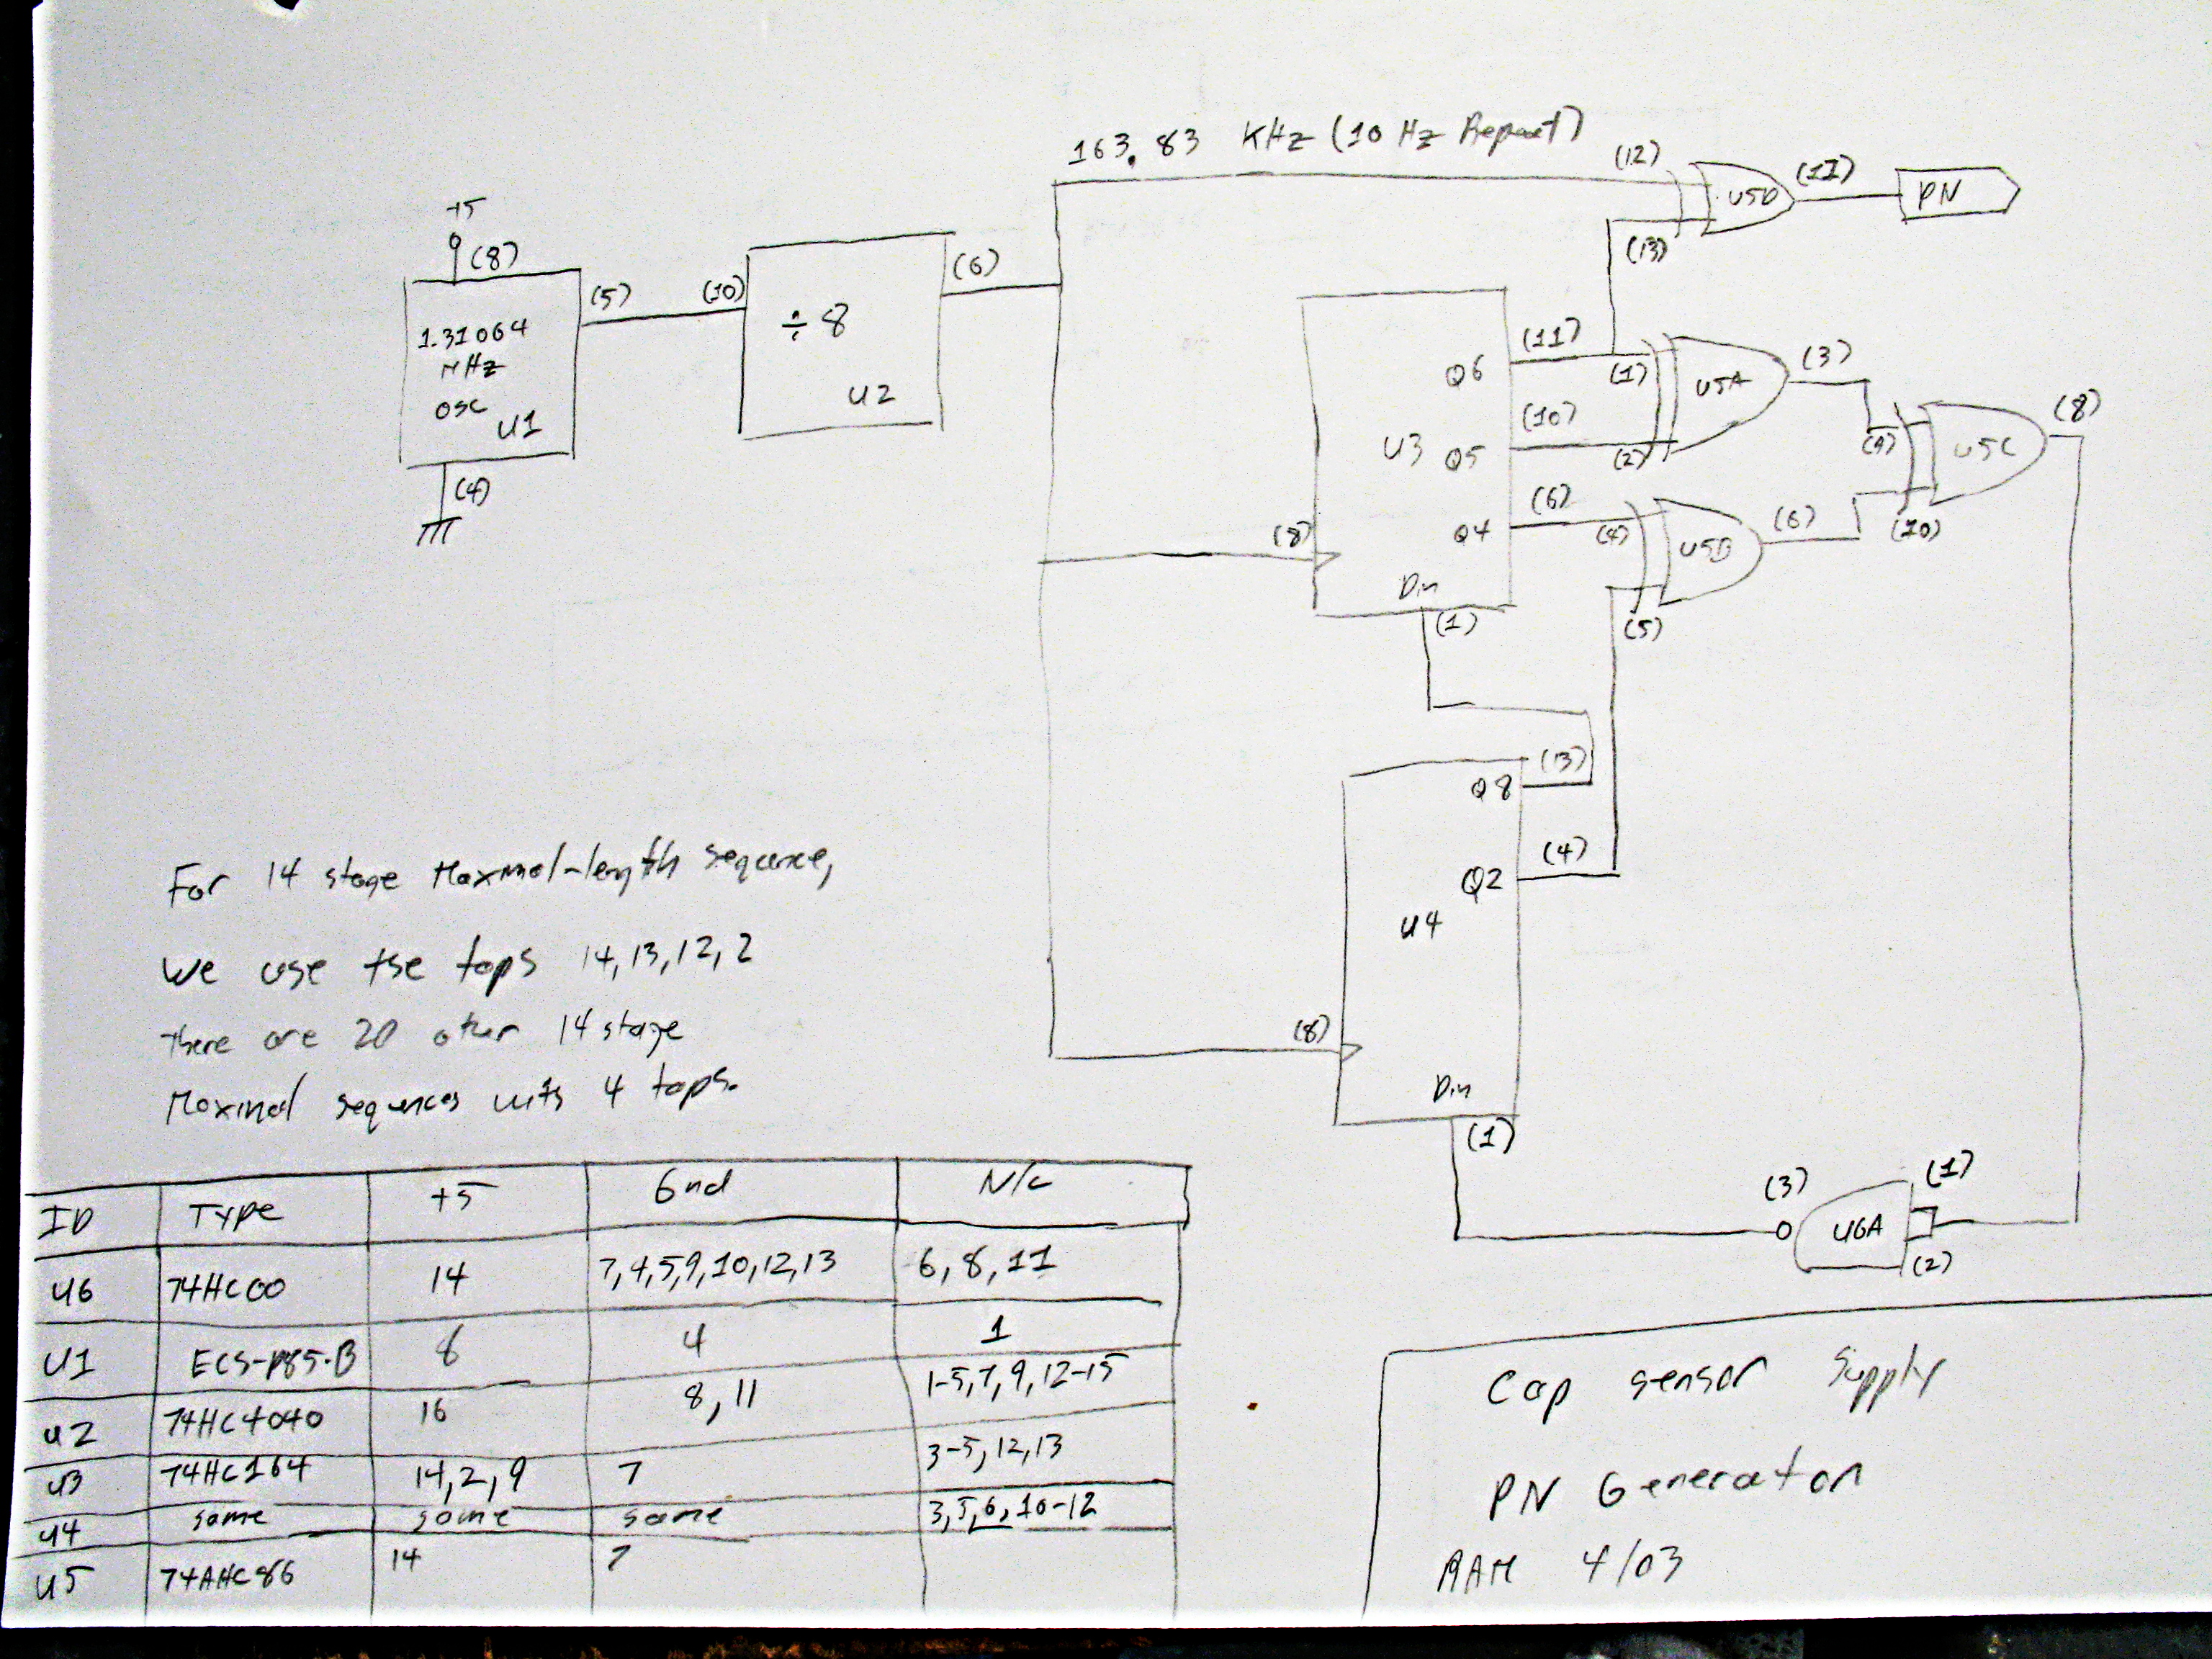 163.83 KHz (10 Hz Repeat)
(12)
(13)
U5D
(11)
PN
+5
(8)
1.31064
MHz
OSC
U1
(4)
(5)
(10)
÷8
U2
(6)
U3
Q6
(11)
Q5
(10)
Q4
(6)
(8)
Din
(1)
(1)
(2)
U5A
(3)
(4)
(5)
U5B
(6)
(9)
(10)
U5C
(8)
Q8
(13)
Q2
(4)
U4
(8)
Din
(1)
(3)
U6A
(1)
(2)
For 14 stage Maximal-length sequence,
We use the taps 14,13,12,2
there are 20 other 14 stage
Maximal sequences with 4 taps.
ID Type +5 Gnd N/C
U6 74HC00 14 7,4,5,9,10,12,13 6,8,11
U1 ECS-P85-B 8 4 1
U2 74HC4040 16 8,11 1-5,7,9,12-15
U3 74HC164 14,2,9 7 3-5,12,13
U4 same same same 3,5,6,10-12
U5 74AHC86 14 7
Cap sensor Supply
PN Generator
RAM 4/03